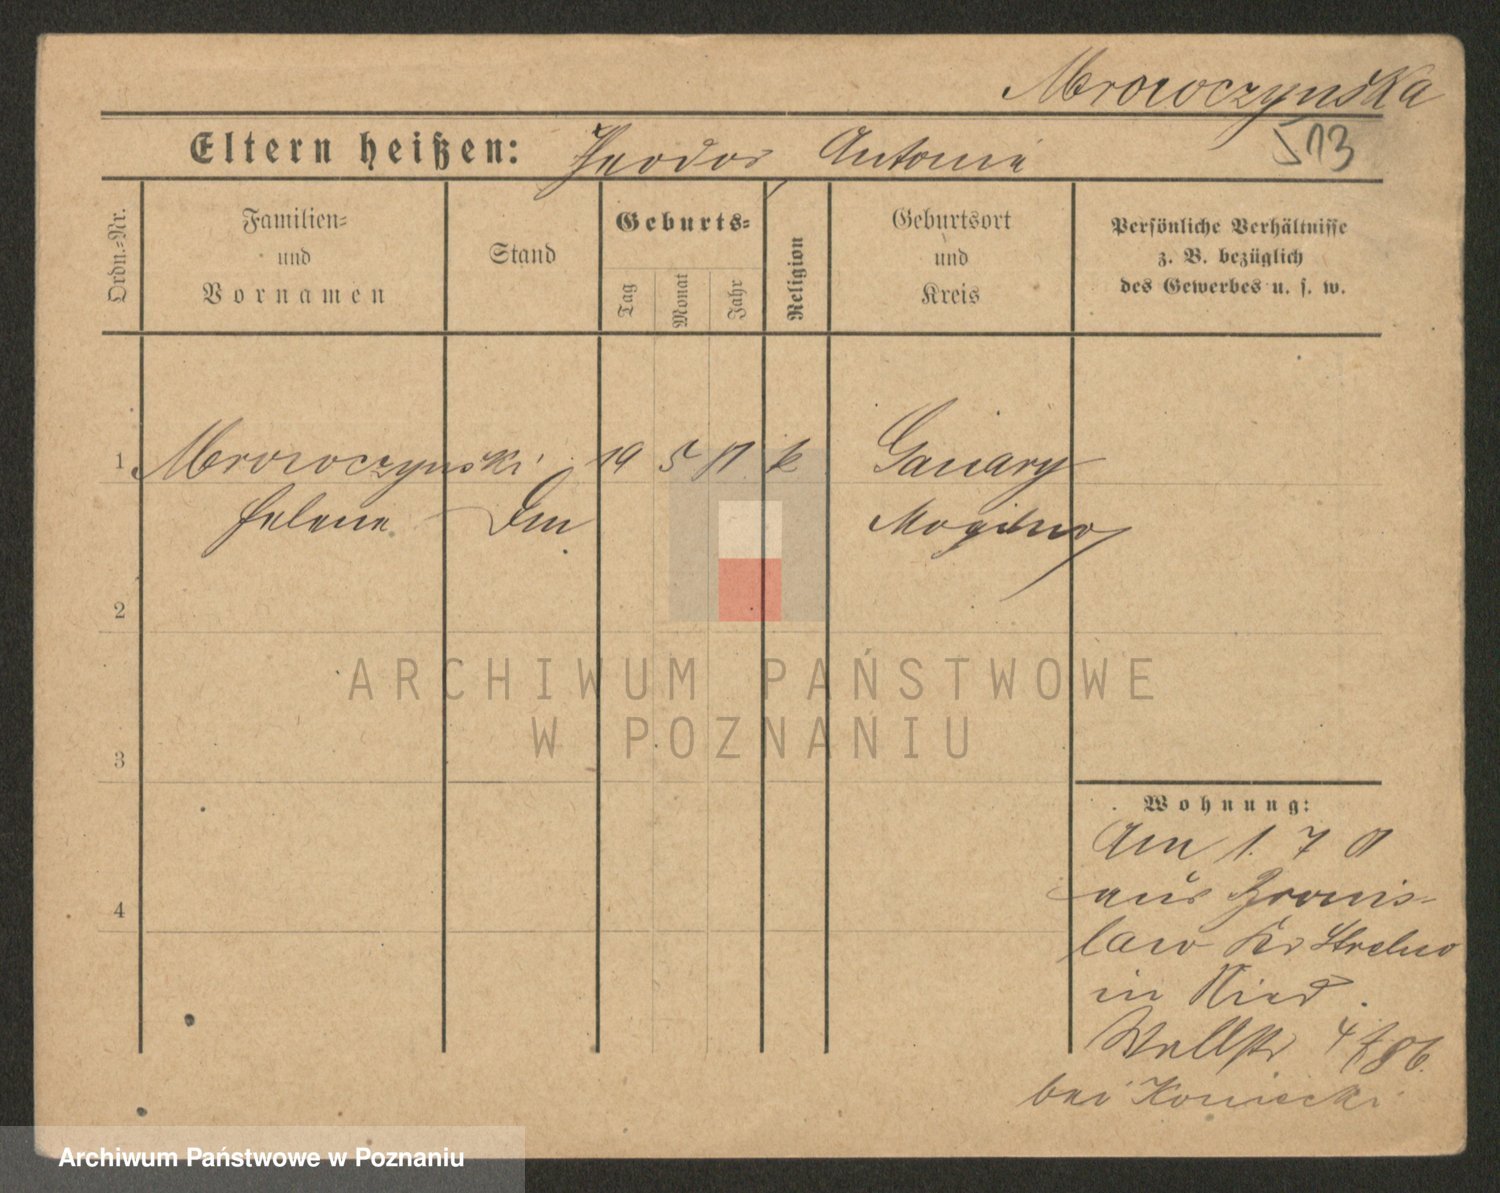 Mrowczynska
513
Eltern heißen: Teodor Antonie
Ordn.-Nr.
Familien- und Vornamen
Stand
Geburts-
Tag
Monat
Jahr
Religion
Geburtsort und Kreis
Persönliche Verhältnisse
z. B. bezüglich
des Gewerbes u. s. w.
1 Mrowczynski 19 5 k
Helene
Mogilno
2
3
4
Wohnung:
Am 1. 7
aus Bronis-
law Kr Strelno
in Ried.
Wallstr
bei Koniecki
ARCHIWUM PAŃSTWOWE
W POZNANIU
Archiwum Państwowe w Poznaniu